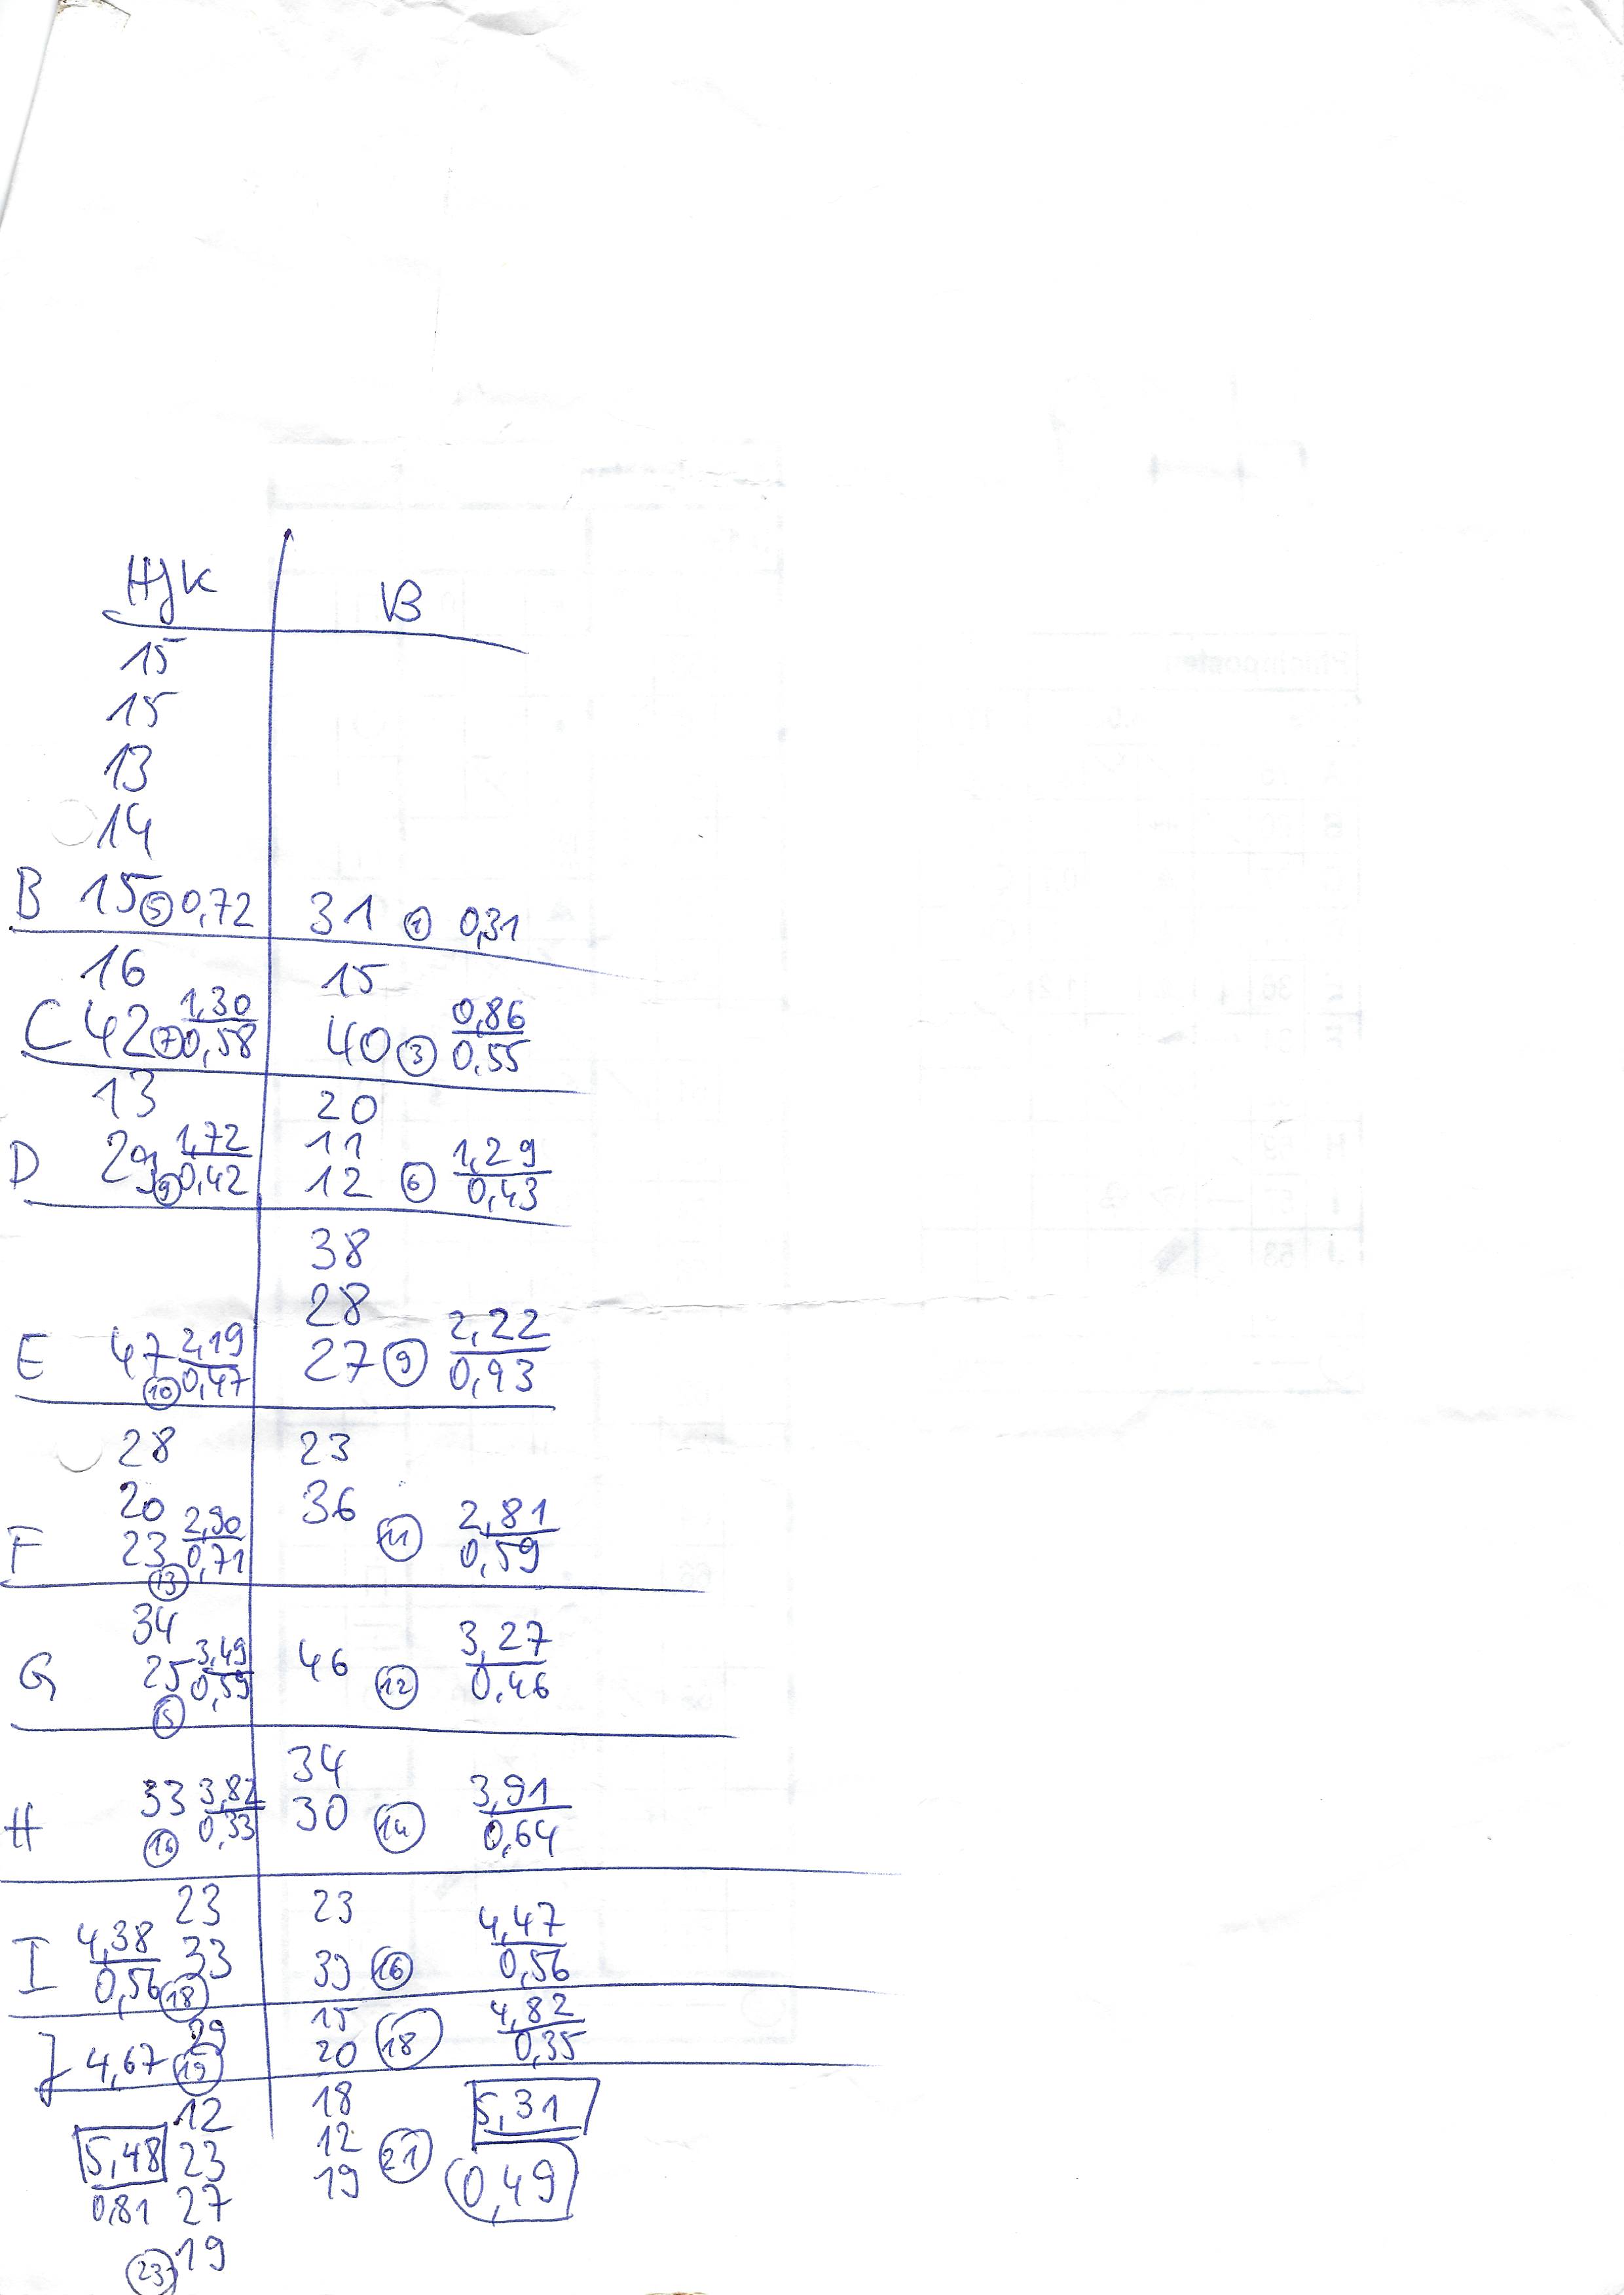 HJK VB
15
15
13
14
B 15 5 0,72 31 1 0,31
16 15
C 42 7 1,30 0,58 40 3 0,86 0,55
13 20
11
D 29 9 1,72 0,42 12 6 1,29 0,43
38
28
E 47 10 2,19 0,47 27 9 2,22 0,93
28 23
20 36
F 23 13 2,90 0,71 11 2,81 0,59
34
G 25 15 3,49 0,59 46 12 3,27 0,46
34
H 33 16 3,82 0,33 30 14 3,91 0,64
23 23
I 4,38 0,56 33 18 33 16 4,47 0,56
29 15
J 4,67 19 20 18 4,82 0,35
12 18 5,31
5,48 23 12 21
0,81 27 19 0,49
23 19